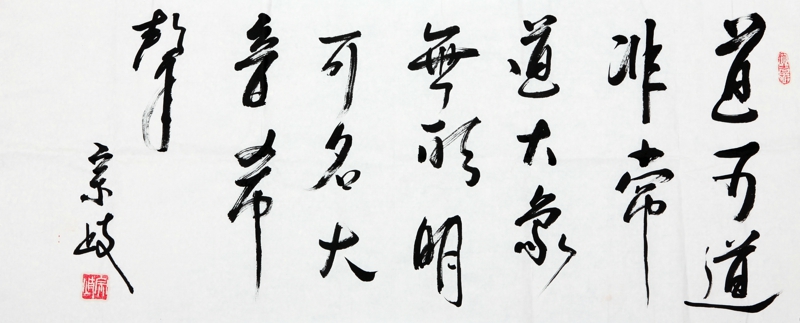 道可道
非常
道大象
無形明
可名大
音希
聲
宗